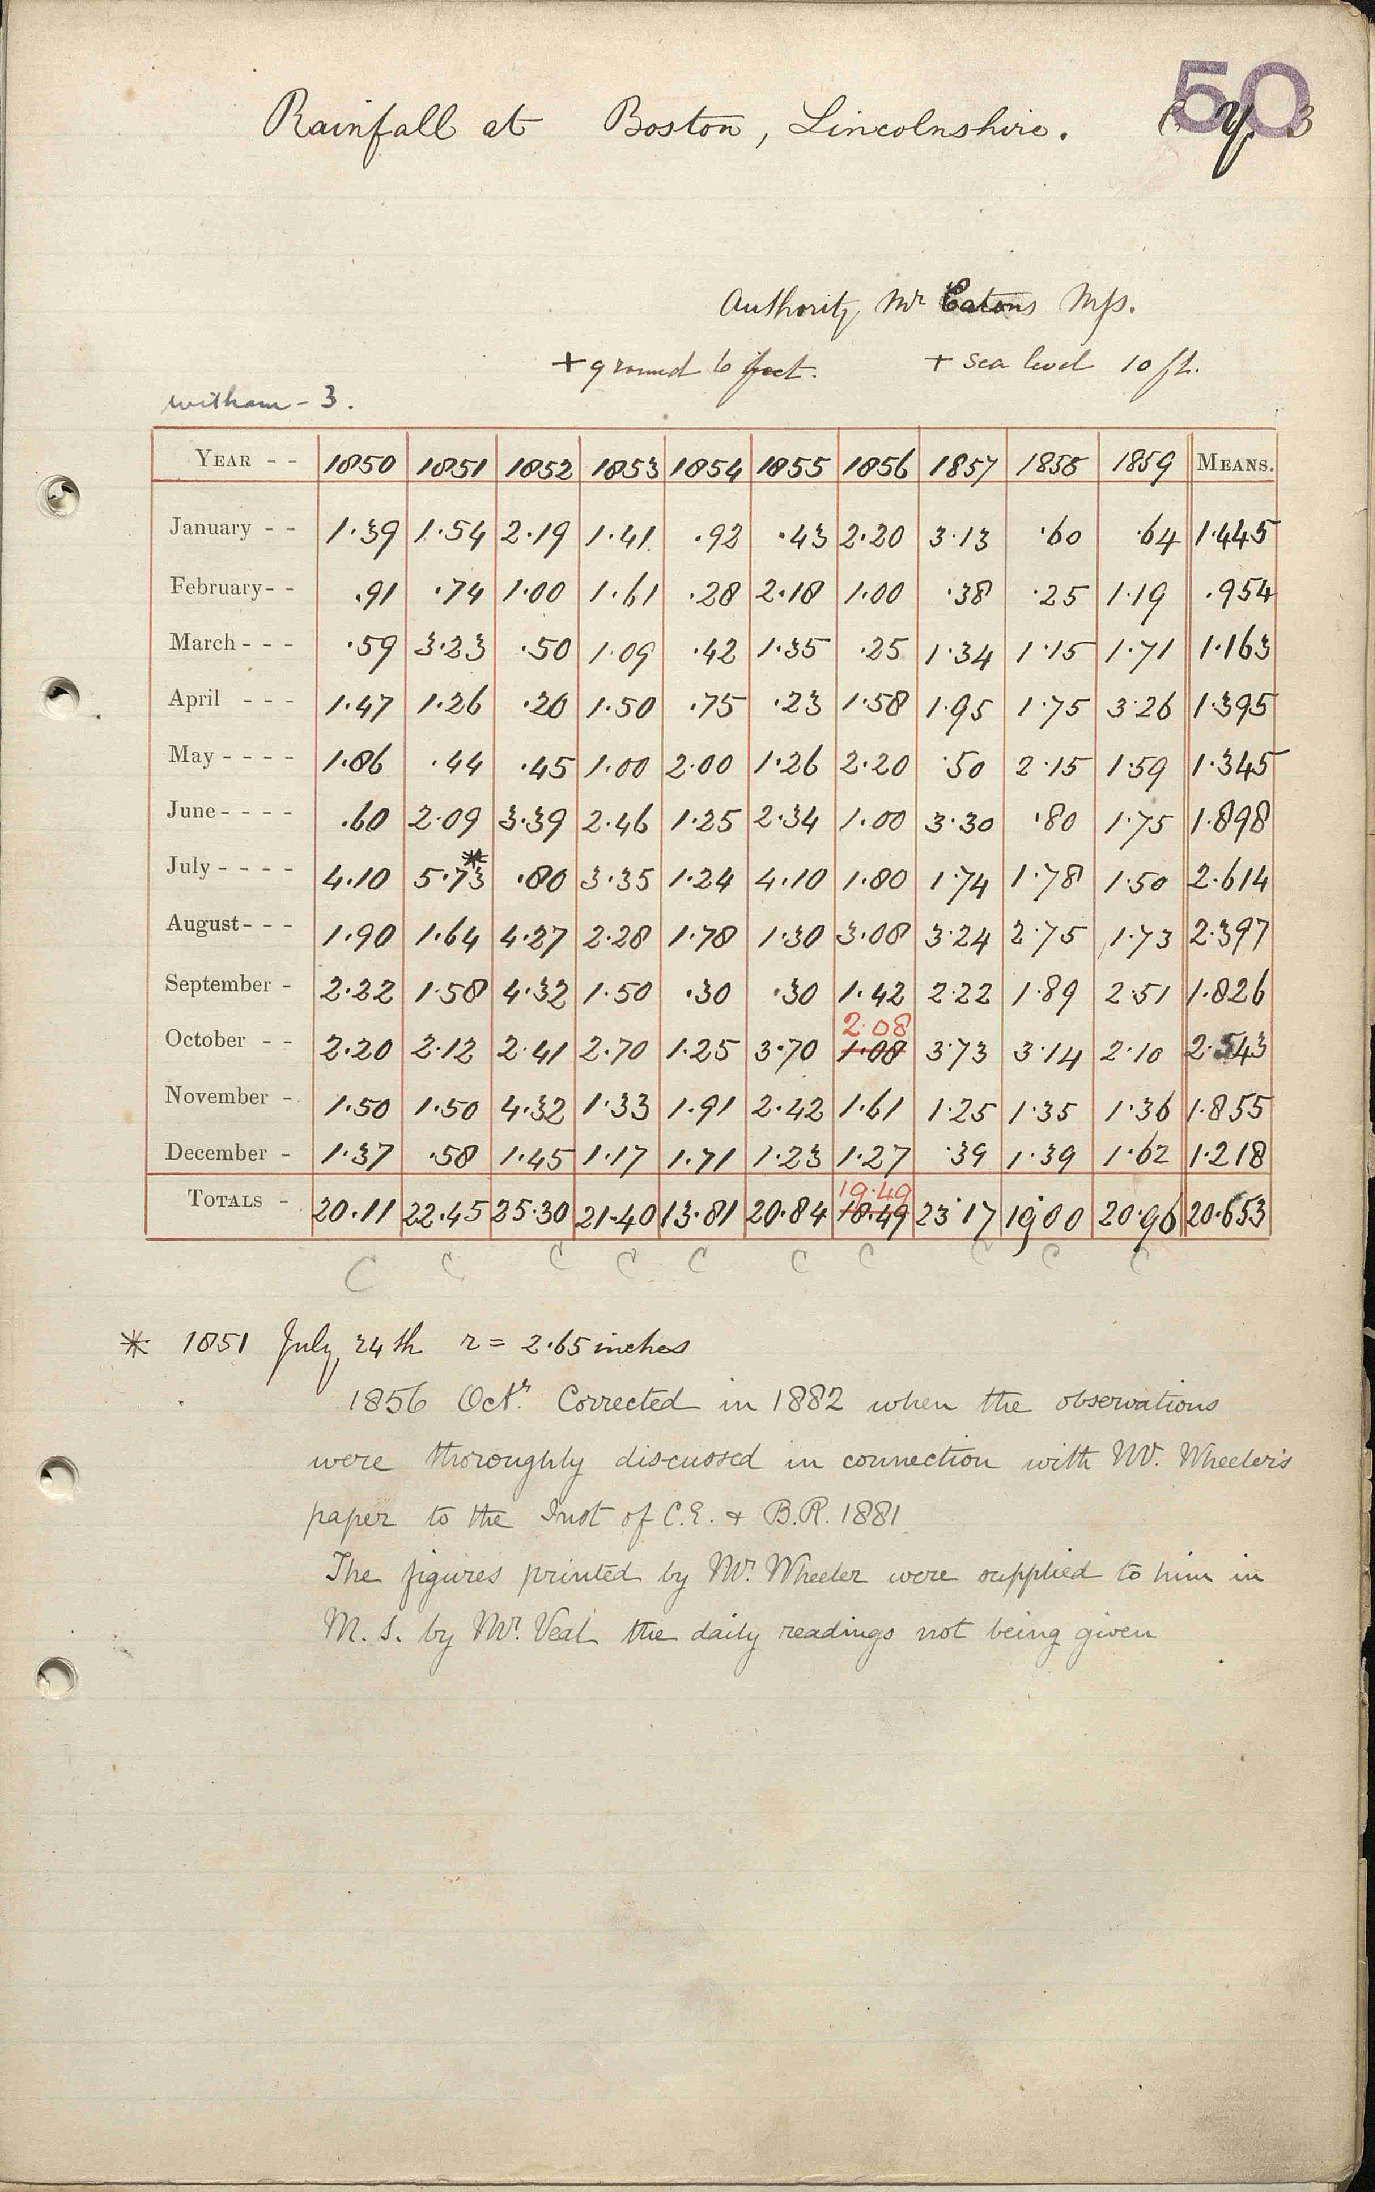 50
Rainfall at Boston, Lincolnshire.
Authority Mr Eatons Mss.
+ ground 6 feet. + sea level 10 ft.
Witham - 3.
YEAR - - 1850 1851 1852 1853 1854 1855 1856 1857 1858 1859 MEANS.
January - - 1.39 1.54 2.19 1.41 .92 .43 2.20 3.13 .60 .64 1.445
February - - .91 .74 1.00 1.61 .28 2.18 1.00 .38 .25 1.19 .954
March - - - .59 3.23 .50 1.09 .42 1.35 .25 1.34 1.15 1.71 1.163
April - - - 1.47 1.26 .20 1.50 .75 .23 1.58 1.95 1.75 3.26 1.395
May - - - - 1.86 .44 .45 1.00 2.00 1.26 2.20 .50 2.15 1.59 1.345
June - - - - .60 2.09 3.39 2.46 1.25 2.34 1.00 3.30 .80 1.75 1.898
July - - - - 4.10 5.73* .80 3.35 1.24 4.10 1.80 1.74 1.78 1.50 2.614
August - - - 1.90 1.64 4.27 2.28 1.78 1.30 3.08 3.24 2.75 1.73 2.397
September - 2.22 1.58 4.32 1.50 .30 .30 1.42 2.22 1.89 2.51 1.826
2.08
October - - 2.20 2.12 2.41 2.70 1.25 3.70 1.08 3.73 3.14 2.10 2.543
November - 1.50 1.50 4.32 1.33 1.91 2.42 1.61 1.25 1.35 1.36 1.855
December - 1.37 .58 1.45 1.17 1.71 1.23 1.27 .39 1.39 1.62 1.218
19.49
TOTALS - 20.11 22.45 25.30 21.40 13.81 20.84 18.49 23.17 19.00 20.96 20.653
C C C C C C C C C C
* 1851 July 24th r = 2.65 inches
1856 Octr. Corrected in 1882 when the observations
were thoroughly discussed in connection with Mr. Wheeler's
paper to the Inst of C.E. & B.R. 1881
The figures printed by Mr. Wheeler were supplied to him in
M.S. by Mr. Veal the daily readings not being given